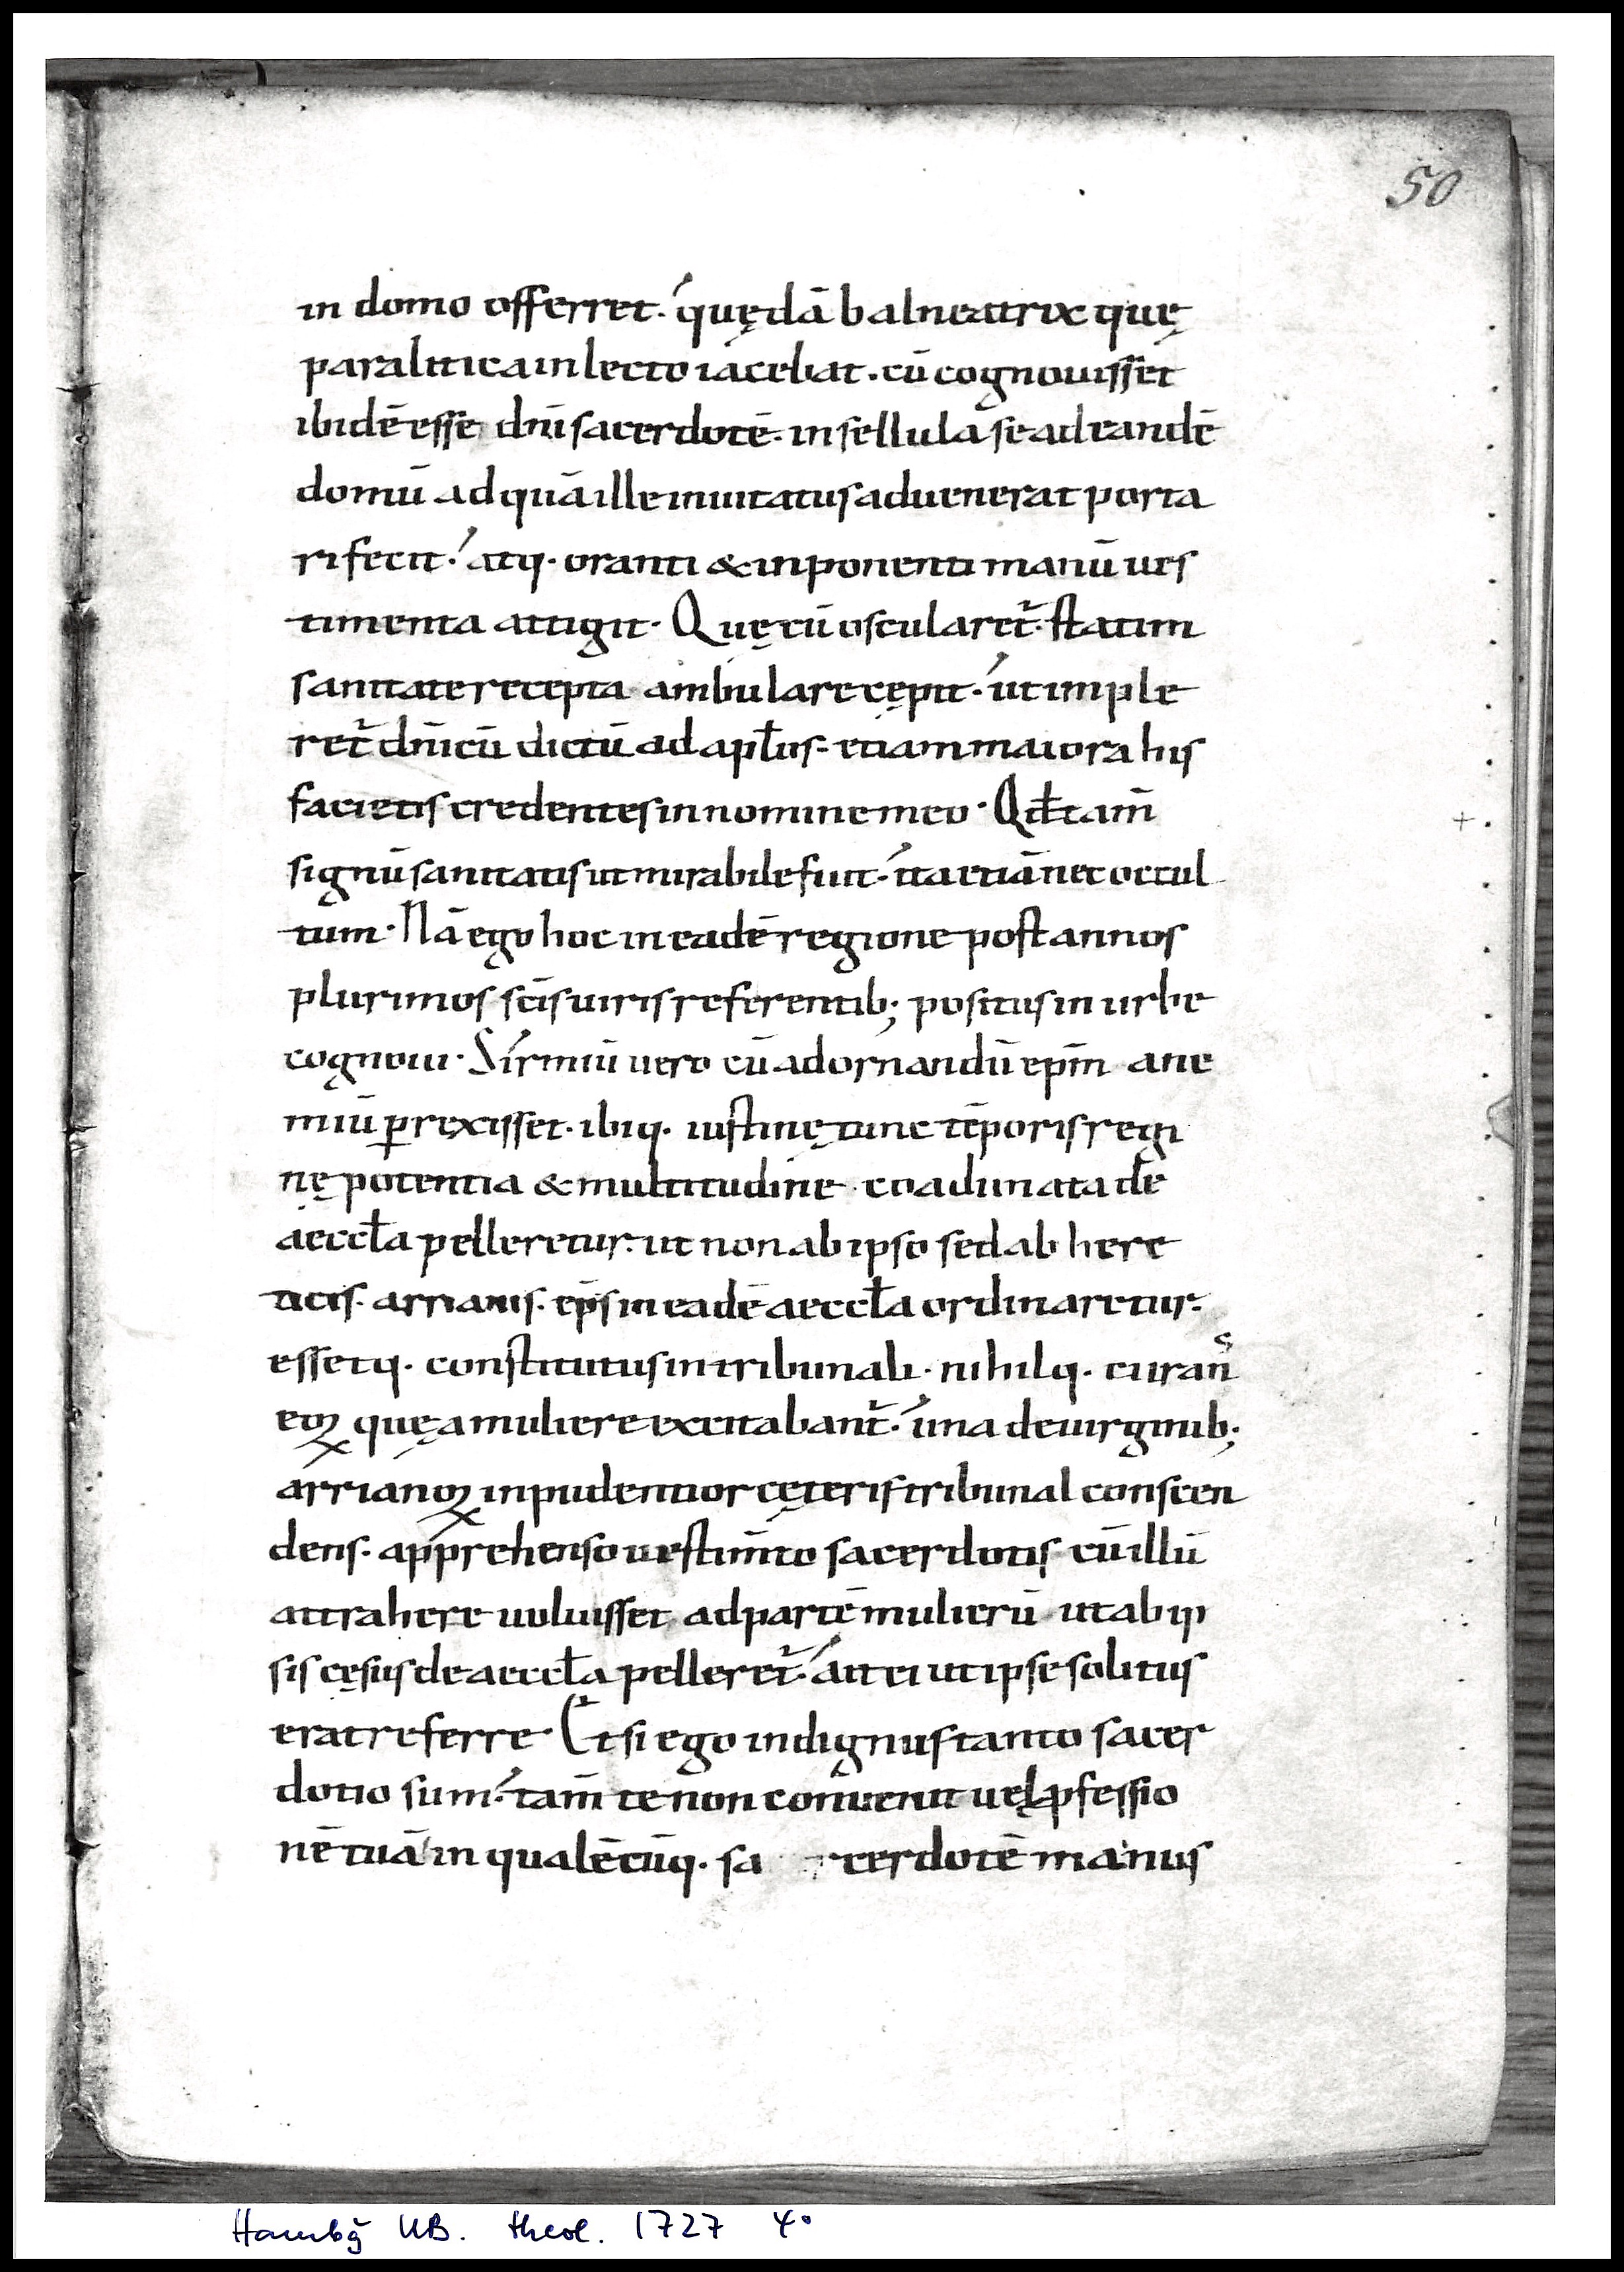 50
in domo offerret. quędā balneatrix quę
paralitica in lecto iacebat. cū cognouisset
ibidē esse dn̄i sacerdotē. in sellulā se ad eandē
domū ad quā ille inuitatus aduenerat porta
ri fecit. atq· oranti & inponenti manū ues
timenta attigit. Quę cū oscularet̄. statim
sanitate recepta ambulare cępit. ut imple
ret̄ dn̄icū dictū ad apłos. etiam maiora his
facietis credentes in nomine meo. Qđ tam̄
signū sanitatis ut mirabile fuit. ita etiā nec occul
tum. Nā ego hoc in eadē regione post annos
plurimos sc̄is uiris referentib; positus in urbe
cognoui. Sirmiū uero cū ad ornandū epm̄ ane
miū ꝑrexisset. ibiq· iustinę tunc tēporis regi
nę potentia & multitudine coadunata de
aeccła pelleretur. ut non ab ipso sed ab here
ticis. arrianis. ep̄s in eadē aeccła ordinaretur.
essetq· constitutus in tribunali. nihilq· curans̄
eoꝝ quę a muliere excitabant̄. una de uirginib;
arrianoꝝ inpudentior cęteris tribunal conscen
dens. apprehenso uestim̄to sacerdotis cū illū
attrahere uoluisset ad partē mulierū ut ab ip
sis cęsus de aeccła pelleret̄. ait ei ut ipse solitus
erat referre. Et si ego indignus tanto sacer
dotio sum. tam̄ te non conuenit uel ꝓfessio
nē tuā in qualēcūq· sa cerdotē manus
Hambg UB. theol. 1727 4°